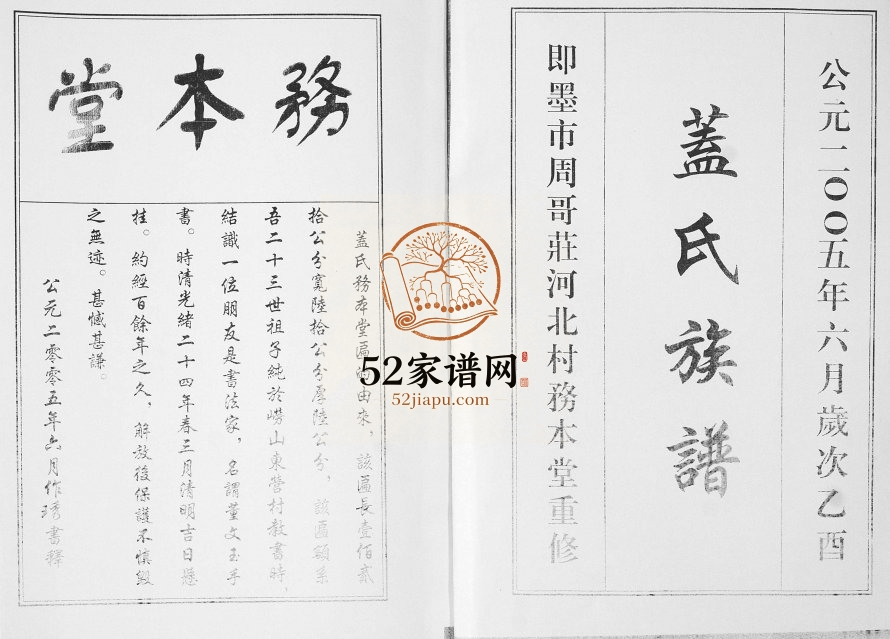 公元二〇〇五年六月歲次乙酉
蓋氏族譜
即墨市周哥莊河北村務本堂重修
務本堂
蓋氏務本堂匾的由來，該匾長壹佰貳
拾公分寬陸拾公分厚陸公分，該匾額系
吾二十三世祖子純於嶗山東營村教書時，
結識一位朋友是書法家，名謂董文玉手
書。時清光緒二十四年春三月清明吉日懸
挂。約經百餘年之久，解放後保護不慎毀
之無迹。甚憾甚謙。
公元二零零五年六月作琇書釋
52家谱网
52jiapu.com